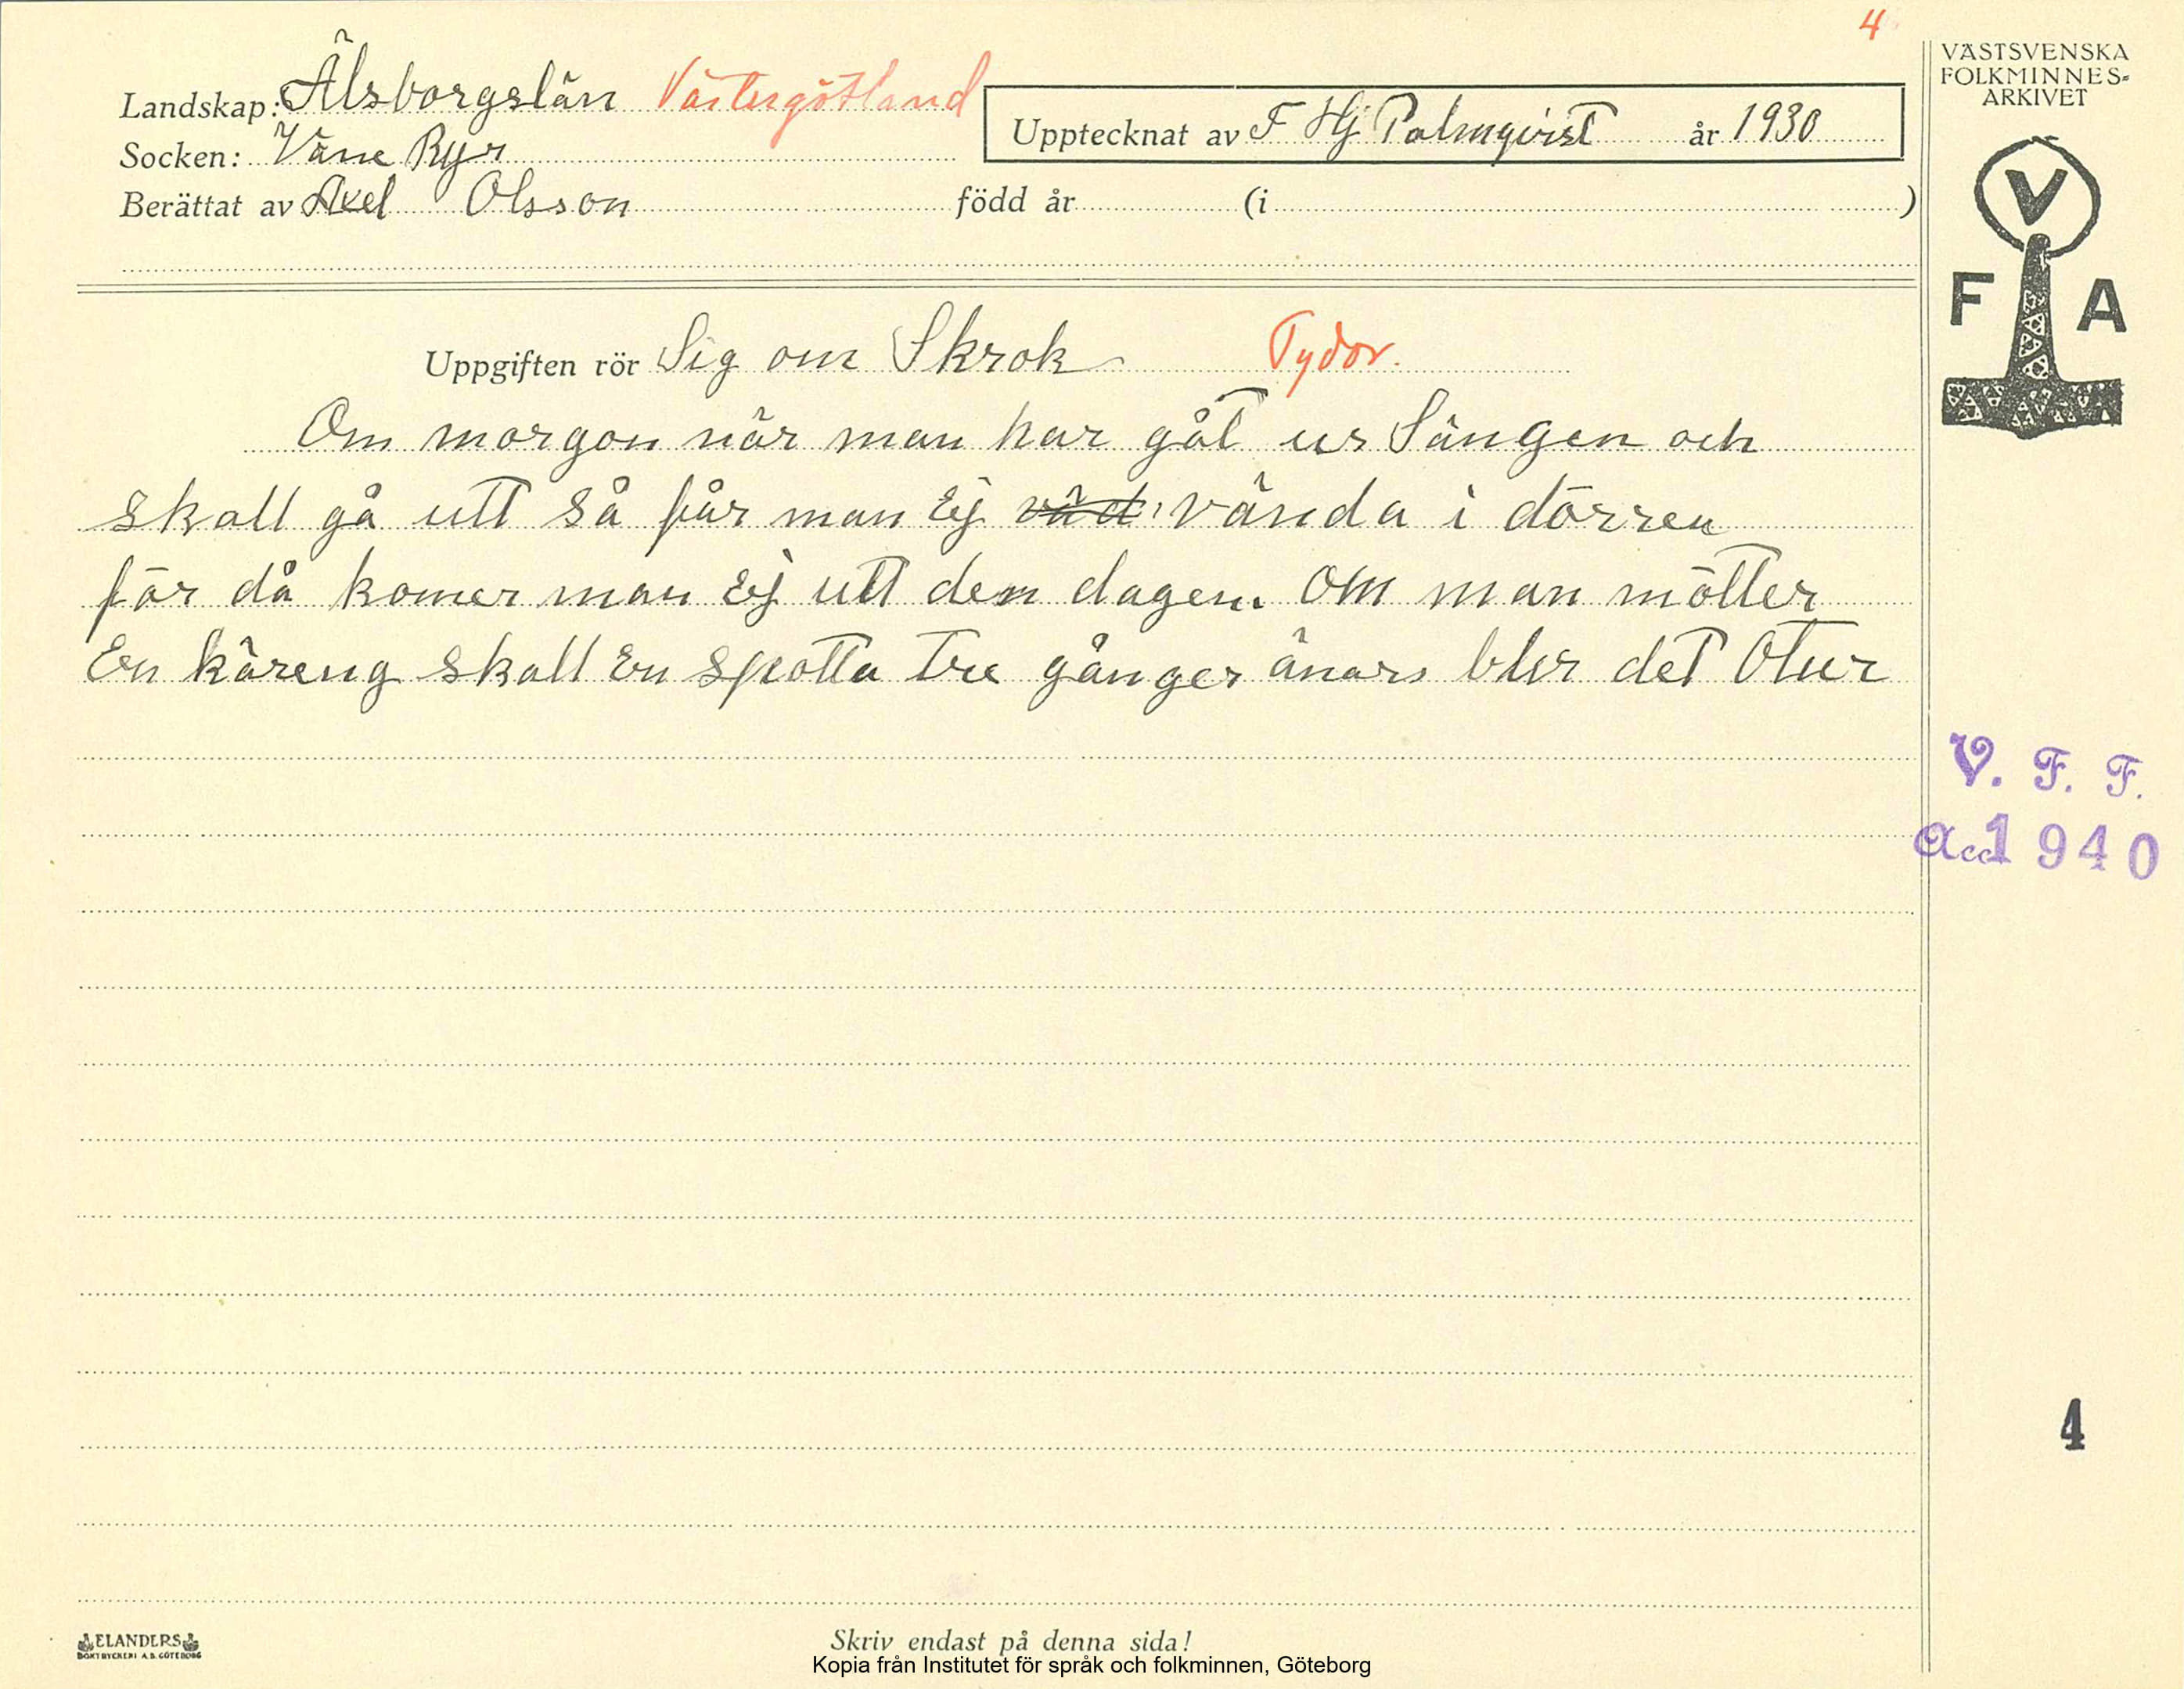 4
VÄSTSVENSKA
FOLKMINNES-
ARKIVET
Landskap: Älsborgslän Västergötland
Upptecknat av F Hj Palmqvist år 1930
Socken: Väne Ryr
Berättat av Axel Olsson född år (i )
V
F A
Uppgiften rör Sig om Skrok Tydor.
Om morgon når man har gåt ur Sängen och
skall gå utt så får man Ej väd vända i dörren
för då komer man Ej utt den dagen. Om man mötter
En käreng skall En spotta Tre gånger änars blir det Otur
V. F. F.
Acc 1940
4
ELANDERS
BOKTRYCKERI A.B. GÖTEBORG
Skriv endast på denna sida!
Kopia från Institutet för språk och folkminnen, Göteborg